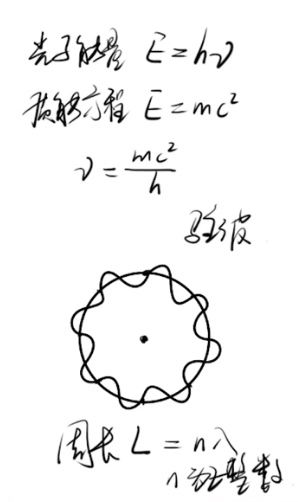 光子能量 E=hν
质能方程 E=mc²
ν=mc²/h
驻波
周长 L=nλ
n为正整数